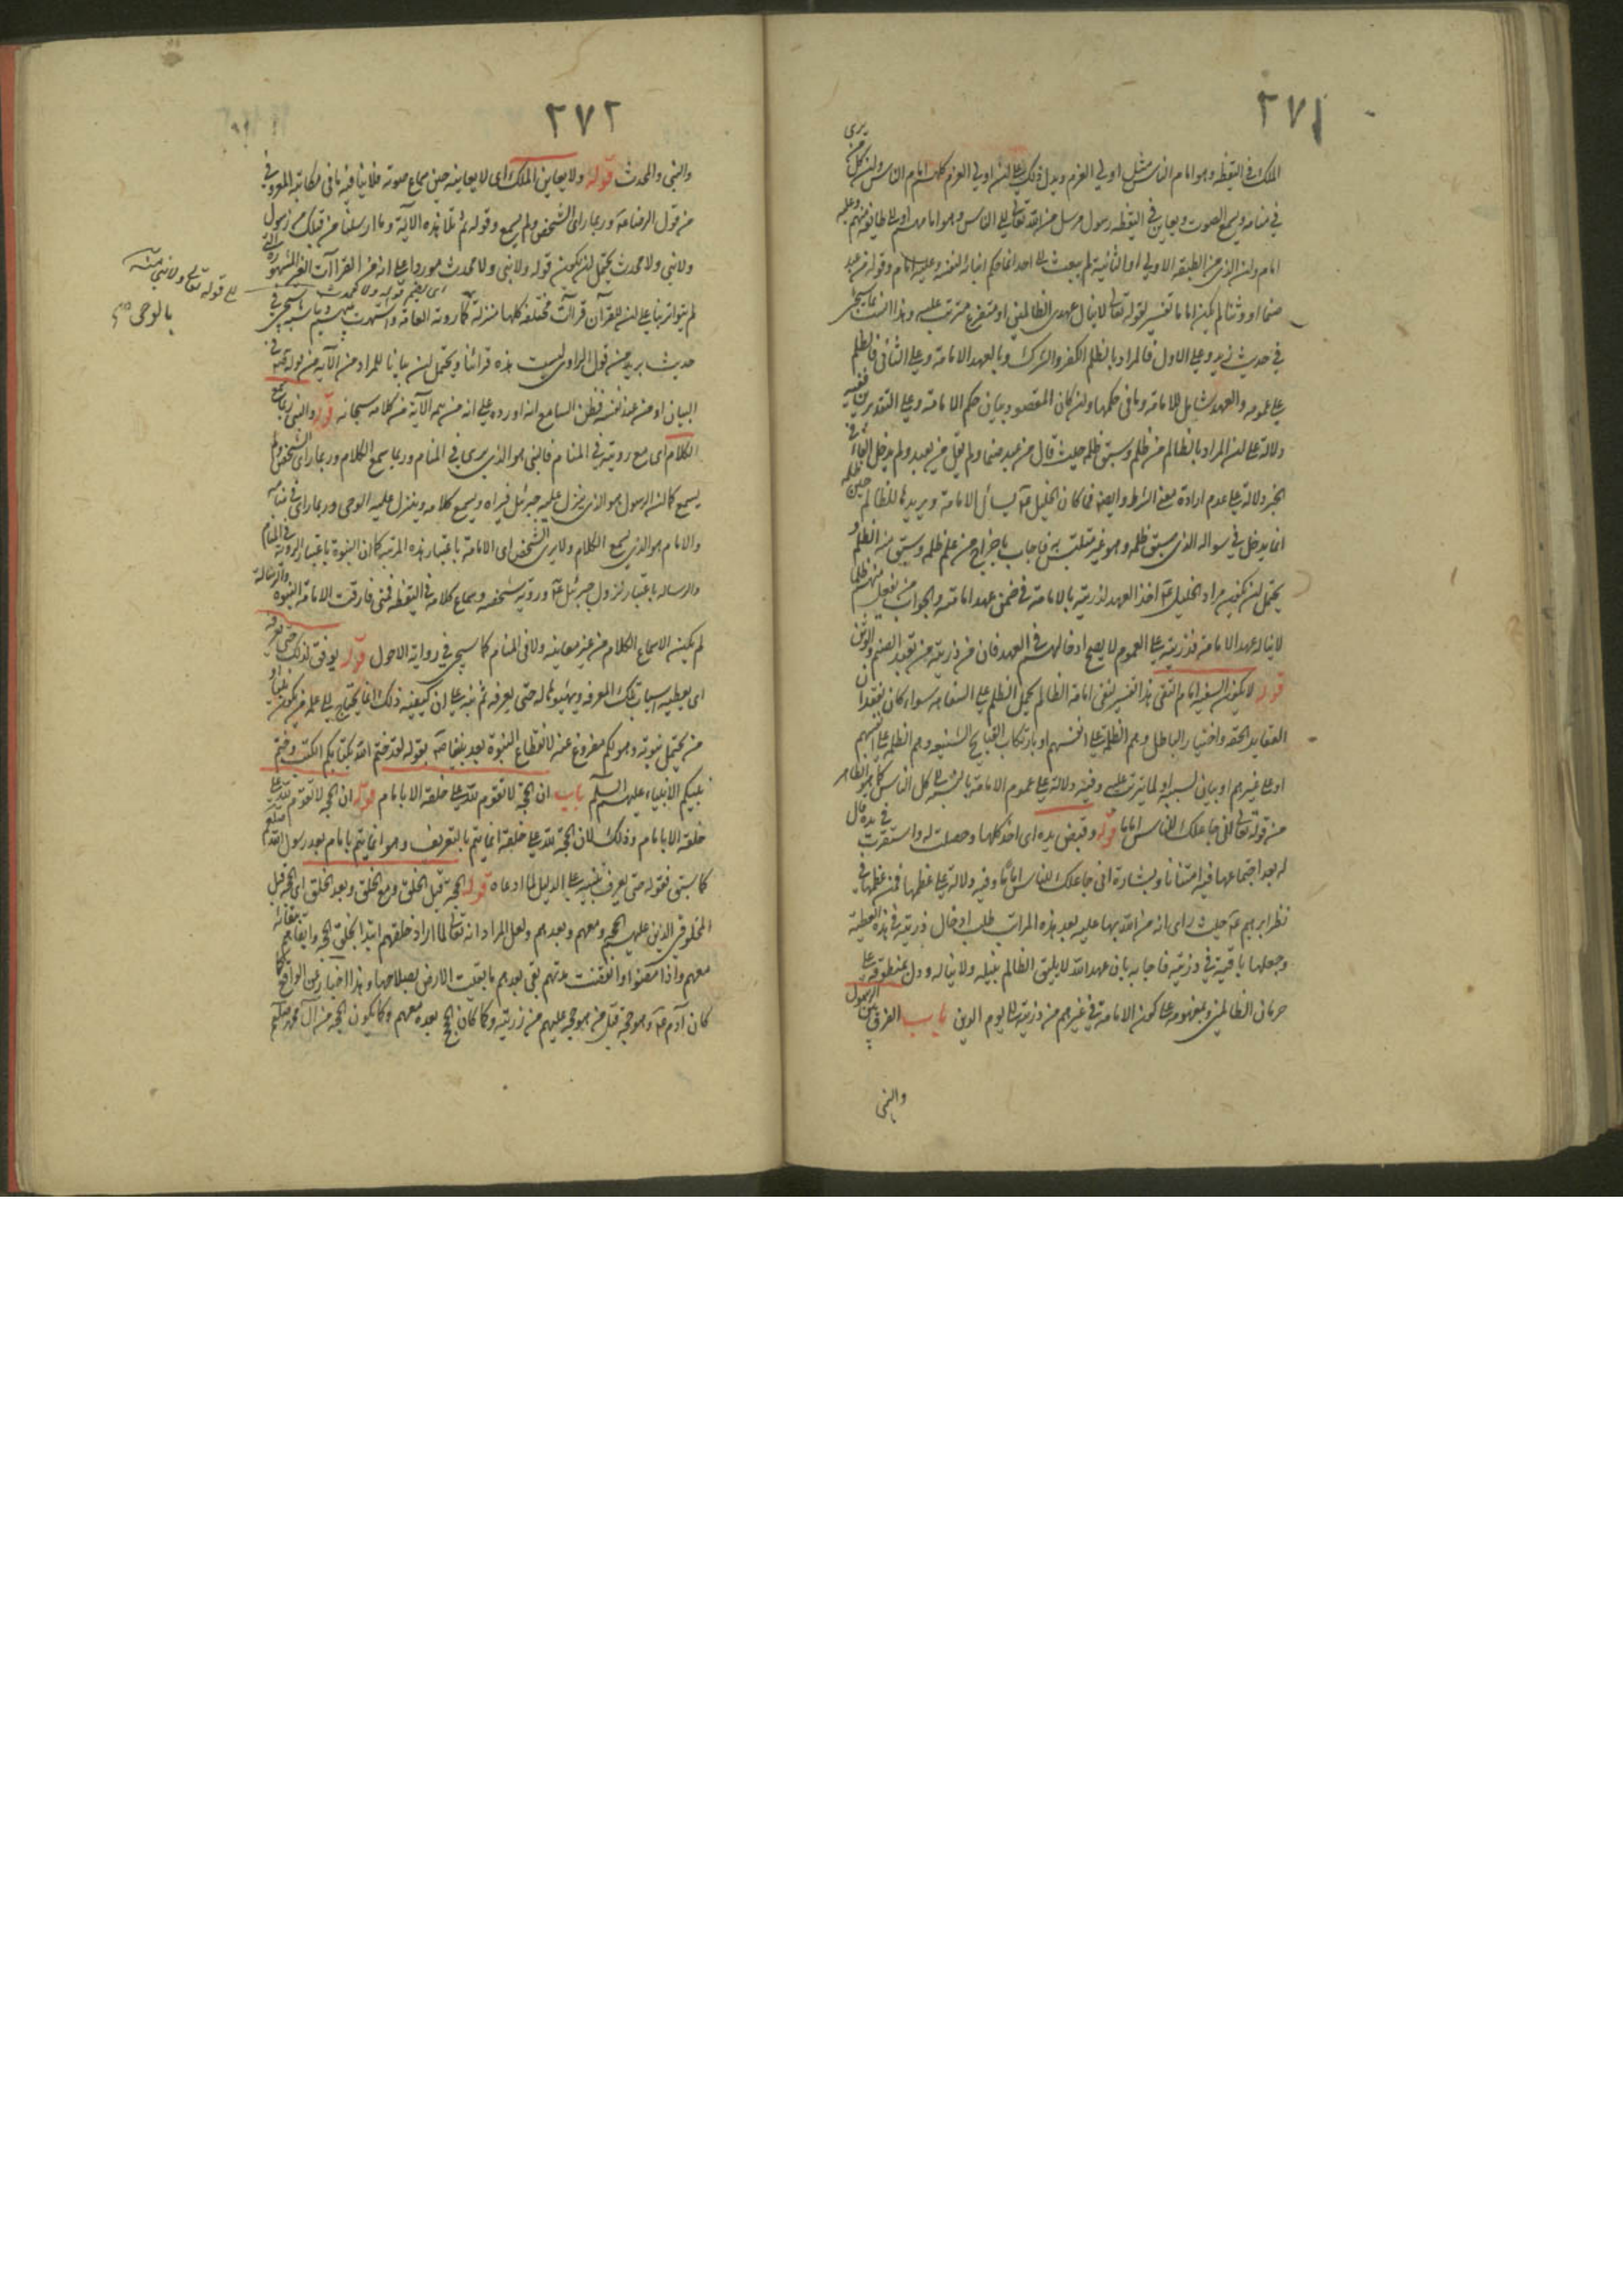 ٢٧١
الملك في اليقظه وهو امام الناس مثل اولي العزم ويدل ذلك على ان اولي العزم كلهم امام الناس وان كل من يرى
في منامه ويسمع الصوت ويعاين في اليقظه رسول مرسل من الله تعالى الى الناس وهو امامهم او الى طايفة منهم وعليه
امام وان الذي من الطبقه الاولى او الثانية لم يبعث الى احد انما حكم انبائه لنفسه وعليه امام وقوله من عبد
صنما او وثنا لم يكن اماما تفسير لقوله تعالى لا ينال عهدي الظالمين او متفرع مترتب عليه وهذا
في حديث زيد وعلى الاول فالمراد بالظلم الكفر والشرك وبالعهد الامامة وعلى الثاني فالظلم
على عمومه والعهد شامل للامامة وما في حكمها وان كان المقصود بيان حكم الامامة وعلى التقديرين ففيه
دلالة على ان المراد بالظالم من ظلم وسبق ظلمه حيث قال من عبد صنما ولم يقل من يعبد ولم يدخل الفاء في
الخبر دلالة على عدم ارادة معنى الشرط وايضا فما كان الخليل ع يسائل الامامة ويريدها للظالم حين ظلمه
انما يدخل في سواله الذي سبق ظلمه وهو غير متلبس به فاجاب باخراج من علم ظلمه وسبق منه الظلم و
يحتمل ان يكون مراد الخليل ع اخذ العهد لذريته بالامامة في ضمن عهد امامته والجواب من يفعل منهم ظلما
لا يناله عهد الامامة فذريته على العموم لا يصح ادخالهم في العهد فان من ذريته من يعبد الصنم والوثن
قوله لا يكون السفيه امام التقي هذا تفسير لنفي امامة الظالم يحمل الظلم على السفاهه سواء كان بفقدان
العقايد الحقه واختيار الباطل وهم الظلمة على انفسهم او بارتكاب القبايح الشنيعه وهم الظلمه على انفسهم
او على غيرهم او بيان لسببه او لما يترتب عليه وفيه دلالة على عموم الامامة بالنسبة الى كل الناس كما هو الظاهر
من قوله تعالى اني جاعلك للناس اماما قوله وقبض يده اى اخذ كلها وحصلت له واستقرت في يده قال
له بعد اجتماعها فيه امتنانا وبشارة اني جاعلك للناس اماما وفيه دلالة على عظمها فمن عظمها في
نظر ابرهيم ع حيث راى انه من الله بها عليه بعد هذه المراتب طلب ادخال ذريته في هذه العطية
وجعلها باقية في ذريته فاجابه بان عهد الله لا يليق الظالم بنيله ولا يناله ودل بمنطوقه على
حرمان الظالمين وبمفهومه على كون الامامة في غيرهم من ذريته الى يوم الدين باب الفرق بين الرسول
والنبى
٢٧٢
والنبى والمحدث قوله ولا يعاين الملك اى لا يعاينه حين سماع صوته فلا ينافيه ما في مكاتبة المعروفي
من قول الرضا ع وربما راى الشخص ولم يسمع وقوله ثم تلا هذه الآية وما ارسلنا من قبلك من رسول
ولا نبى ولا محدث يحتمل ان يكون قوله ولا نبى ولا محدث موردا على انه من القراآت الغير المشهوره التي
اى بضم قوله ولا محدث
الى قوله تعالى ولا نبى منه
بالوحى
لم يتواتر بناء على ان للقرآن قراآت مختلفة كلها منزلة كما روته العامة واشتهرت بينهم ويناسبه ما سيجي في
حديث بريد من قول الراوى ليست هذه قرائتنا ويحتمل ان بيانا للمراد من الآية من قوله في
البيان او من عند نفسه فظن السامع انه اورده على انه من تتمه الآية من كلامه سبحانه قوله والنبى ربما سمع
الكلام اى مع رويته في المنام فالنبى هو الذى يرى في المنام وربما سمع الكلام وربما راى الشخص ولم
يسمع كما ان الرسول هو الذى ينزل عليه جبرئيل فيراه ويسمع كلامه وينزل عليه الوحى وربما راى في منامه
والامام هو الذى يسمع الكلام ولا يرى الشخص اى الامامة باعتبار هذه المرتبه كما ان النبوة باعتبار الروية في المنام
والرساله باعتبار نزول جبرئيل ع ورويته شخصه وسماع كلامه في اليقظه فمتى فارقت الامامة النبوه والرسالة
لم يكن الا سماع الكلام من غير معاينه ولا في المنام كما سيجي في رواية الاحول قوله يوفق لذلك حتى يعرفه
اى يعطيه اسباب تلك المعرفه ويهيئها له حتى يعرفه ثم نبه على ان كيفية ذلك انما يحتاج الى علمه من يكون نبيا او
من يحتمل نبوته وهو لكم مفروغ عنه لانقطاع النبوة بعد نبينا ص بقوله لقد ختم الله بكتابكم الكتب وختم
بنبيكم الانبياء عليهم السلم باب ان الحجة لا تقوم لله على خلقه الا بامام قوله ان الحجة لا تقوم لله على
خلقه الا بامام وذلك لان الحجة لله على خلقه انما يتم بالتعريف وهو انما يتم بامام بعد رسول الله صلعم
كما سبق فقوله حتى يعرف تنبيه على الدليل لما ادعاه قوله الحجة قبل الخلق ومع الخلق وبعد الخلق اى الحجة قبل
المخلوقين الذين عليهم الحجه ومعهم وبعدهم ولعل المراد انه تعالى لما اراد خلقهم ابتدا بخلق الحجه وابقاهم
معهم واذا مضوا وانقضت مدتهم بقى بعدهم ما بقيت الارض بصلاحها وهذا اخبار عن الواقع كما
كان آدم ع وهو حجة قبل من هو حجه عليهم من ذريته وكما كان الحجج بعده معهم وكما يكون الحجه من آل محمد صلعم